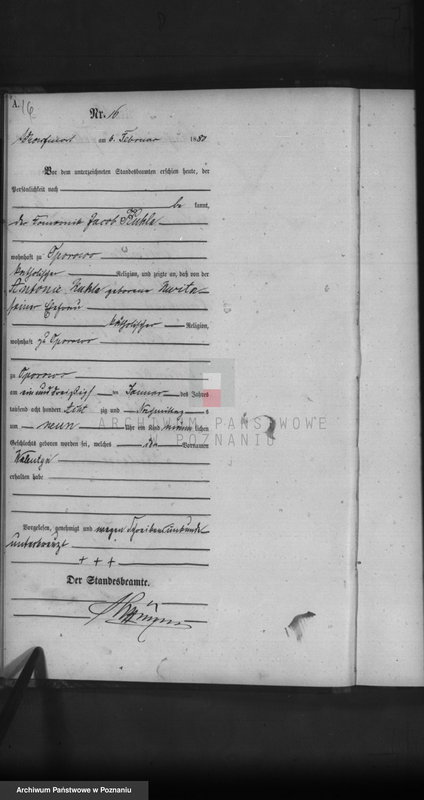 A.
16
Nr. 16
am 6. Februar 1880
Vor dem unterzeichneten Standesbeamten erschien heute, der
Persönlichkeit nach
be kannt,
der Jacob Kukla
wohnhaft zu Oporowo
katholischer Religion, und zeigte an, daß von der
Antonie Kukla geborene
seiner Ehefrau
katholischer Religion,
wohnhaft zu Oporowo
zu Oporowo
am ein und dreißigsten Januar des Jahres
tausend acht hundert acht zig und Nachmittag s
um neun Uhr ein Kind männ lichen
Geschlechts geboren worden sei, welches den Vornamen
erhalten habe
Vorgelesen, genehmigt und wegen Schreibensunkunde
unterkreuzt
+ + +
Der Standesbeamte.
ARCHIWUM PAŃSTWOWE
W POZNANIU
Archiwum Państwowe w Poznaniu